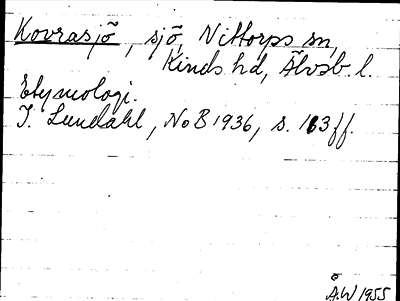 Kovrasjö, sjö, Nittorps sn,
Kinds hd, Älvsb. l.
Etymologi.
I. Lundahl, NoB 1936, s. 163 ff.
Å.W 1955